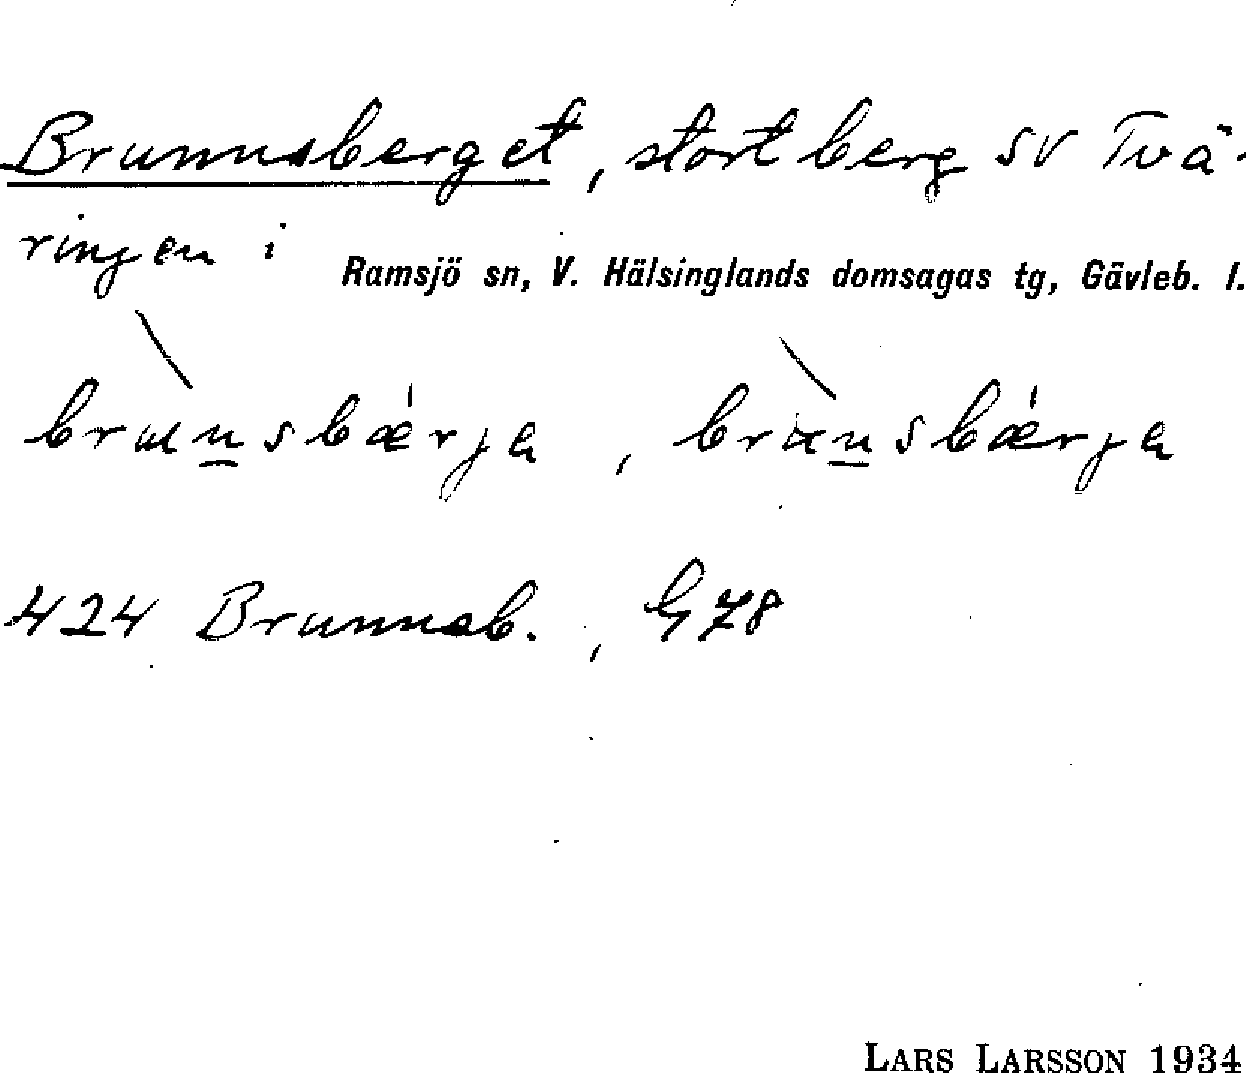 Brunnsberget, stort berg SV Tvä-
ringen i Ramsjö sn, V. Hälsinglands domsagas tg, Gävleb. l.
brunsbærja, brunsbærja
424 Brunnsb., G78
LARS LARSSON 1934